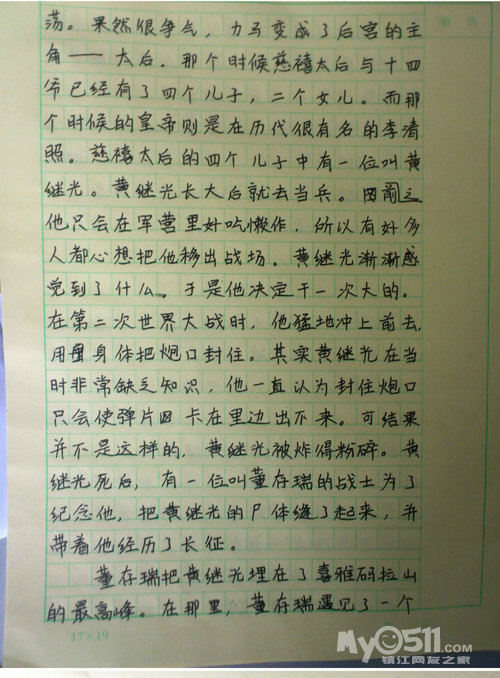 荡。果然很争气，力马变成了后宫的主
角——太后。那个时候慈禧太后与十四
爷已经有了四个儿子，二个女儿。而那
个时候的皇帝则是在历代很有名的李清
照。慈禧太后的四个儿子中有一位叫黄
继光。黄继光长大后就去当兵。因前之
他只会在军营里好吃懒作，所以有好多
人都心想把他移出战场。黄继光渐渐感
觉到了什么。于是他决定干一次大的。
在第二次世界大战时，他猛地冲上前去，
用身体把炮口封住。其实黄继光在当
时非常缺乏知识，他一直认为封住炮口
只会使弹片卡在里边出不来。可结果
并不是这样的，黄继光被炸得粉碎。黄
继光死后，有一位叫董存瑞的战士为了
纪念他，把黄继光的尸体缝了起来，并
带着他经历了长征。
董存瑞把黄继光埋在了喜雅码拉山
的最高峰。在那里，董存瑞遇见了一个
17×19
My0511.com
镇江网友之家